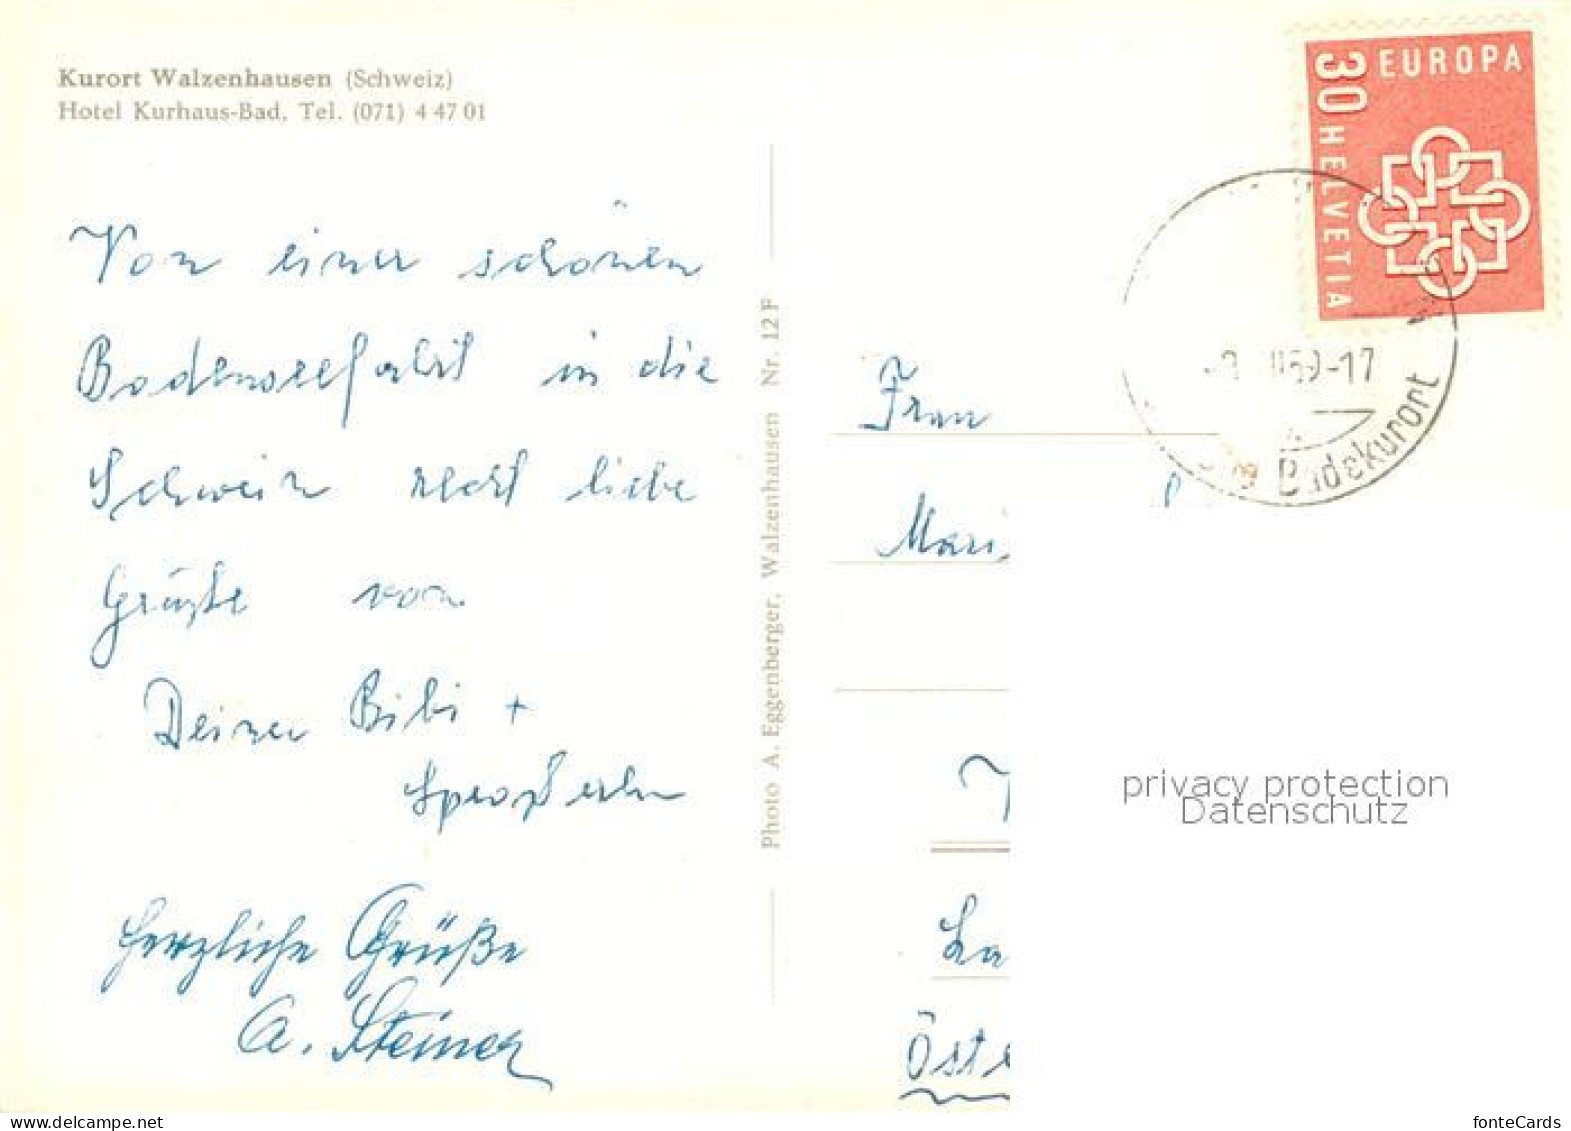 Kurort Walzenhausen (Schweiz)
Hotel Kurhaus-Bad, Tel. (071) 4 47 01
Von einer schönen
Bodenseefahrt in die
Schweiz recht liebe
Grüße von
Deiner Bibi +
Herzliche Grüße
A. Steiner
Photo A. Eggenberger, Walzenhausen Nr. 12 F
EUROPA
30 HELVETIA
59-17
Badekurort
Frau
Mari
La
Öste
privacy protection
Datenschutz
fonteCards